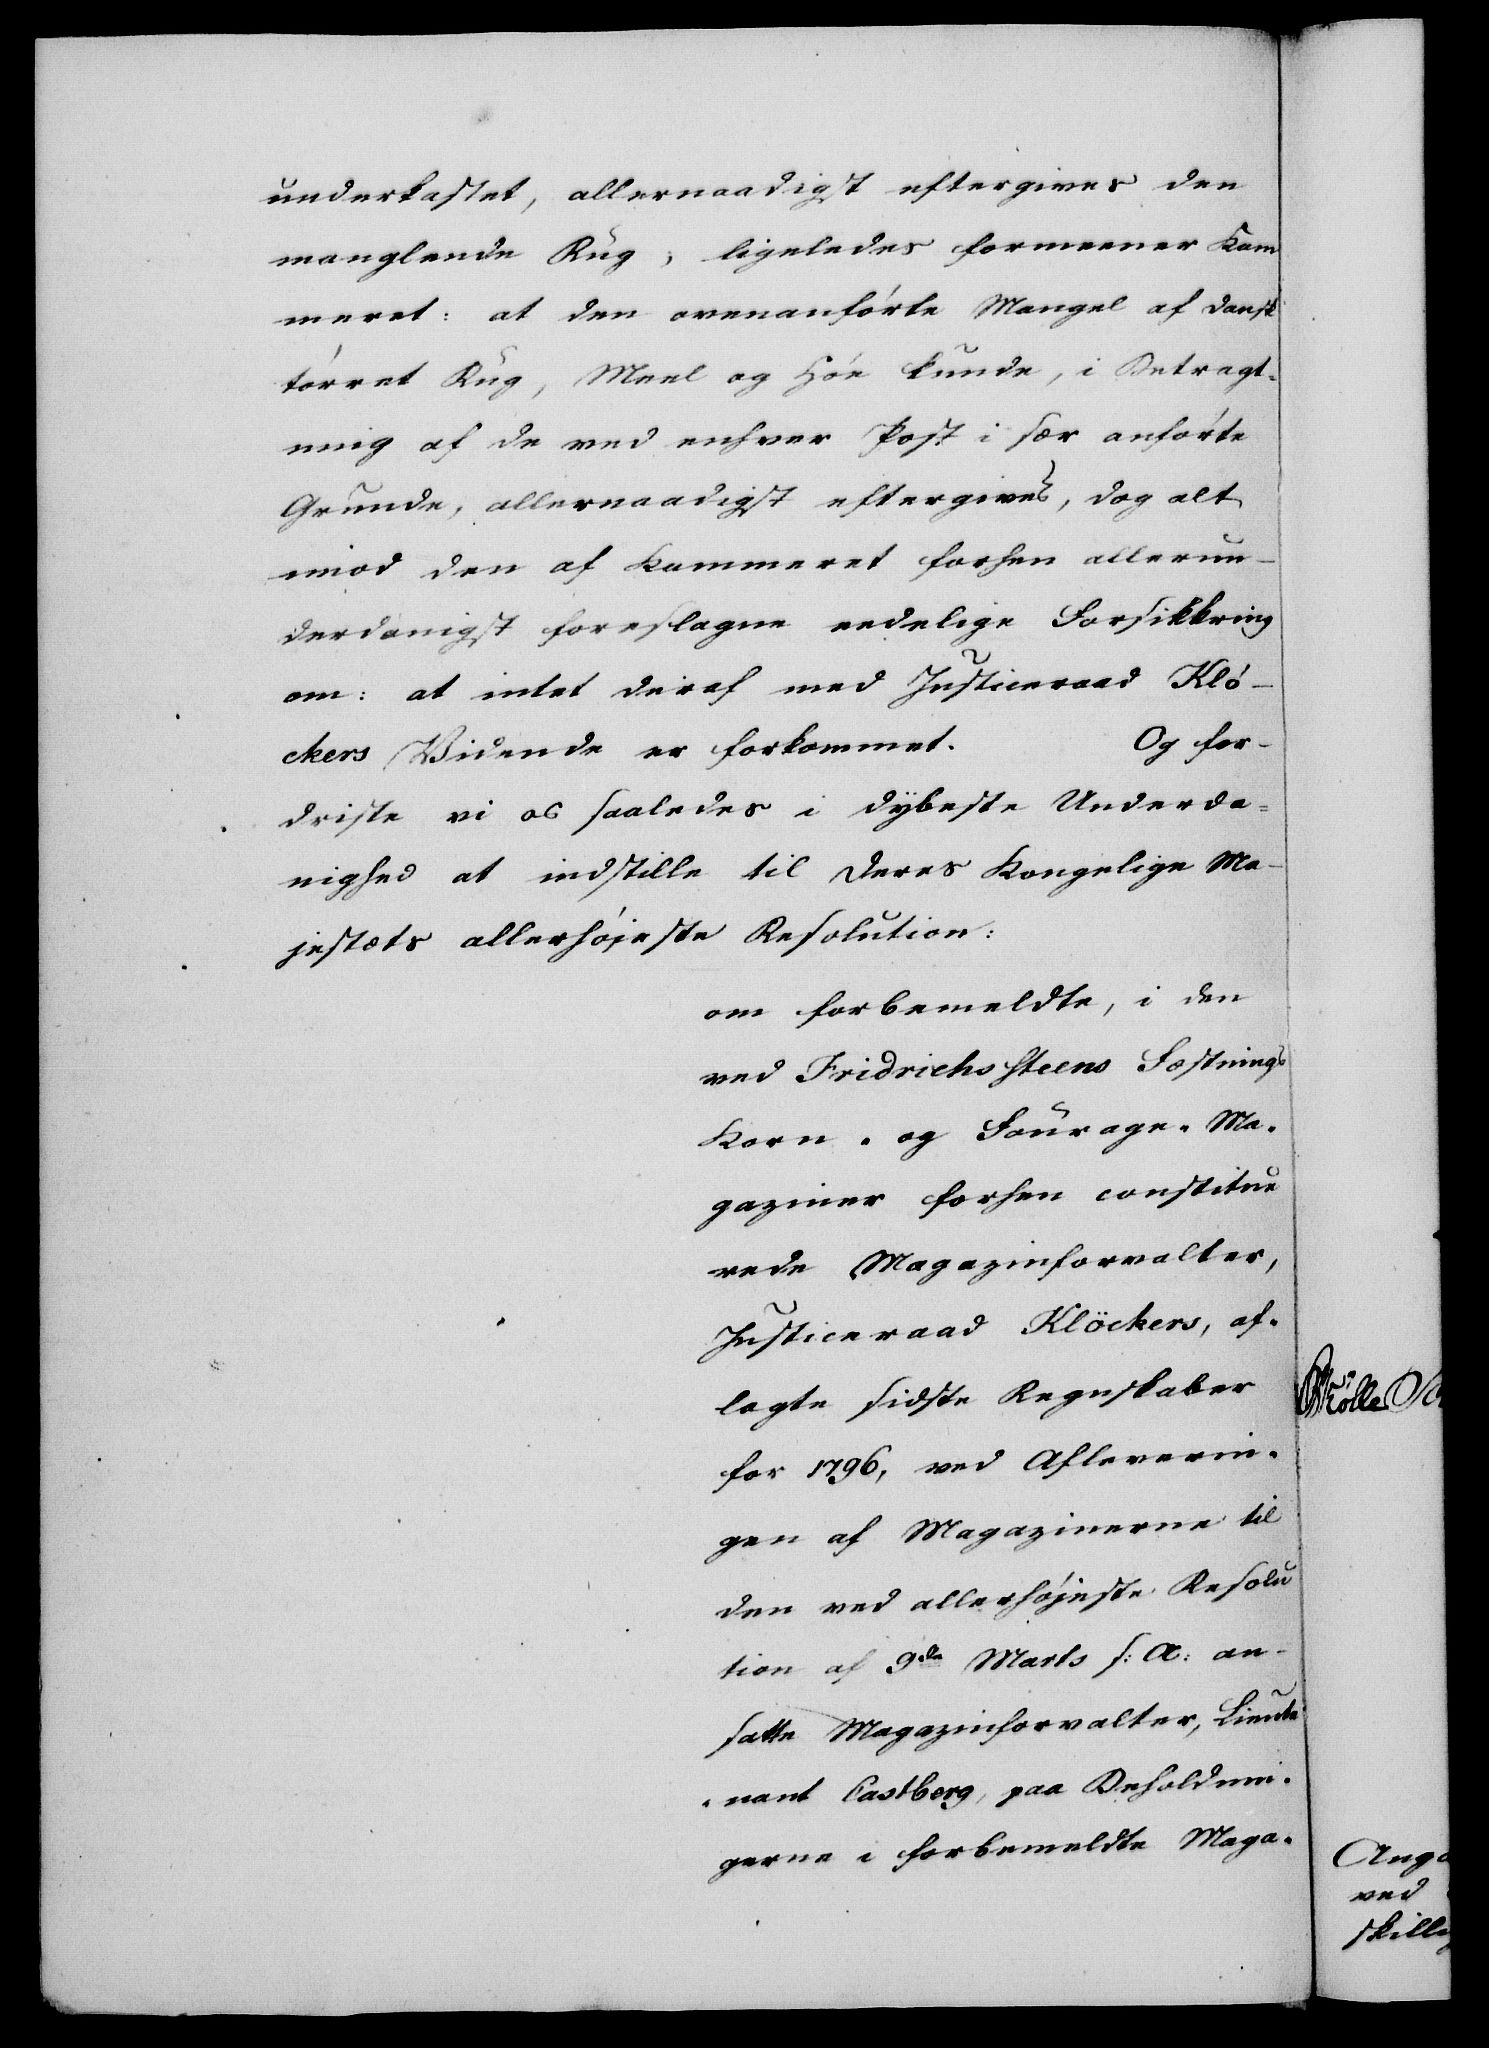 underkastet, allernaadigst eftergives den
manglende Rug; ligeledes formeener Kam
meret: at den ovenanførte Mangel af dansk
tørret Rug, Meel og Høe kunde, i Betragt-
ning af de ved enhver Post i sær anførte
Grunde, allernaadigst eftergives, dog alt
imod den af Kammeret forhen allerun-
derdanigst foreslagne eedelige Forsikkring
om: at intet deraf med Justiceraad Klö-
ckers Vidende er forkommet. Og for-
driste vi os saaledes i dybeste Underda-
nighed at indstille til Deres Kongelige Ma-
jestæts allerhøjeste Resolution:
om forbemeldte, i den
ved Fridrichssteens Fæstnings
Korn- og Fourage-Ma-
gaziner forhen constitue
rede Magazinforvalter,
Justiceraad Klöckers, af-
lagte sidste Regnskaber
for 1796, ved Afleverin-
gen af Magazinerne til
den ved allerhøjeste Resolu
tion af 9de Marts s: A: an-
satte Magazinforvalter, Lieute
-nant Castberg, paa Beholdnin-
gerne i forbemeldte Maga-
Mölle
ved